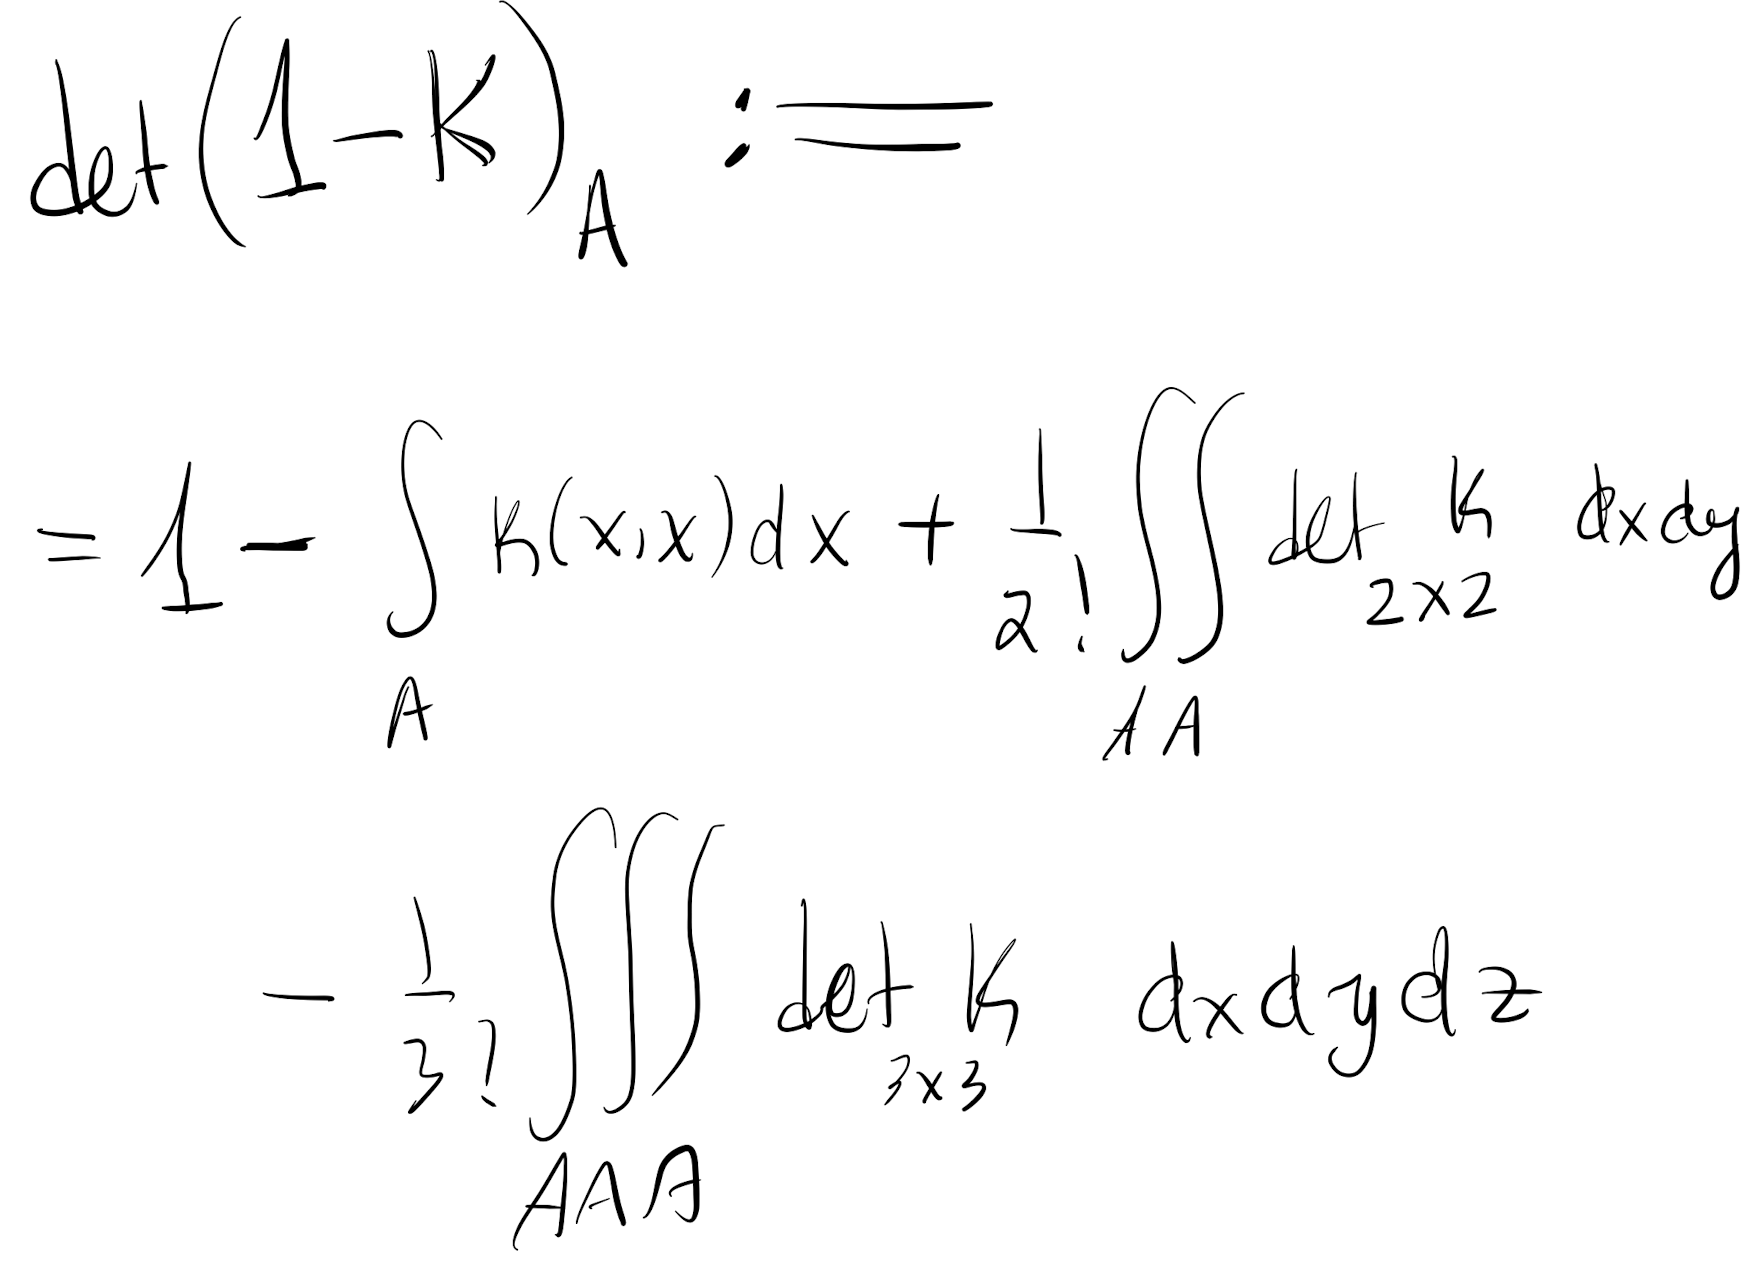 det(1-K)_A :=
= 1 - ∫_A K(x,x)dx + 1/2! ∫∫_{A A} det_{2×2} K dxdy
- 1/3! ∫∫∫_{A A A} det_{3×3} K dxdydz